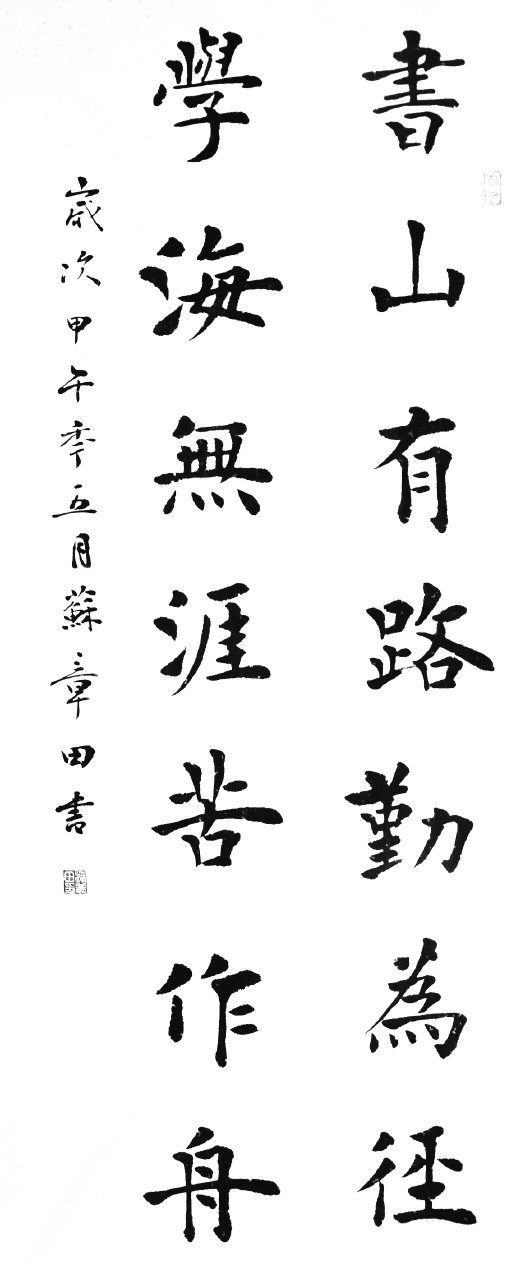 書山有路勤為徑
學海無涯苦作舟
歲次甲午季五月蘇章田书